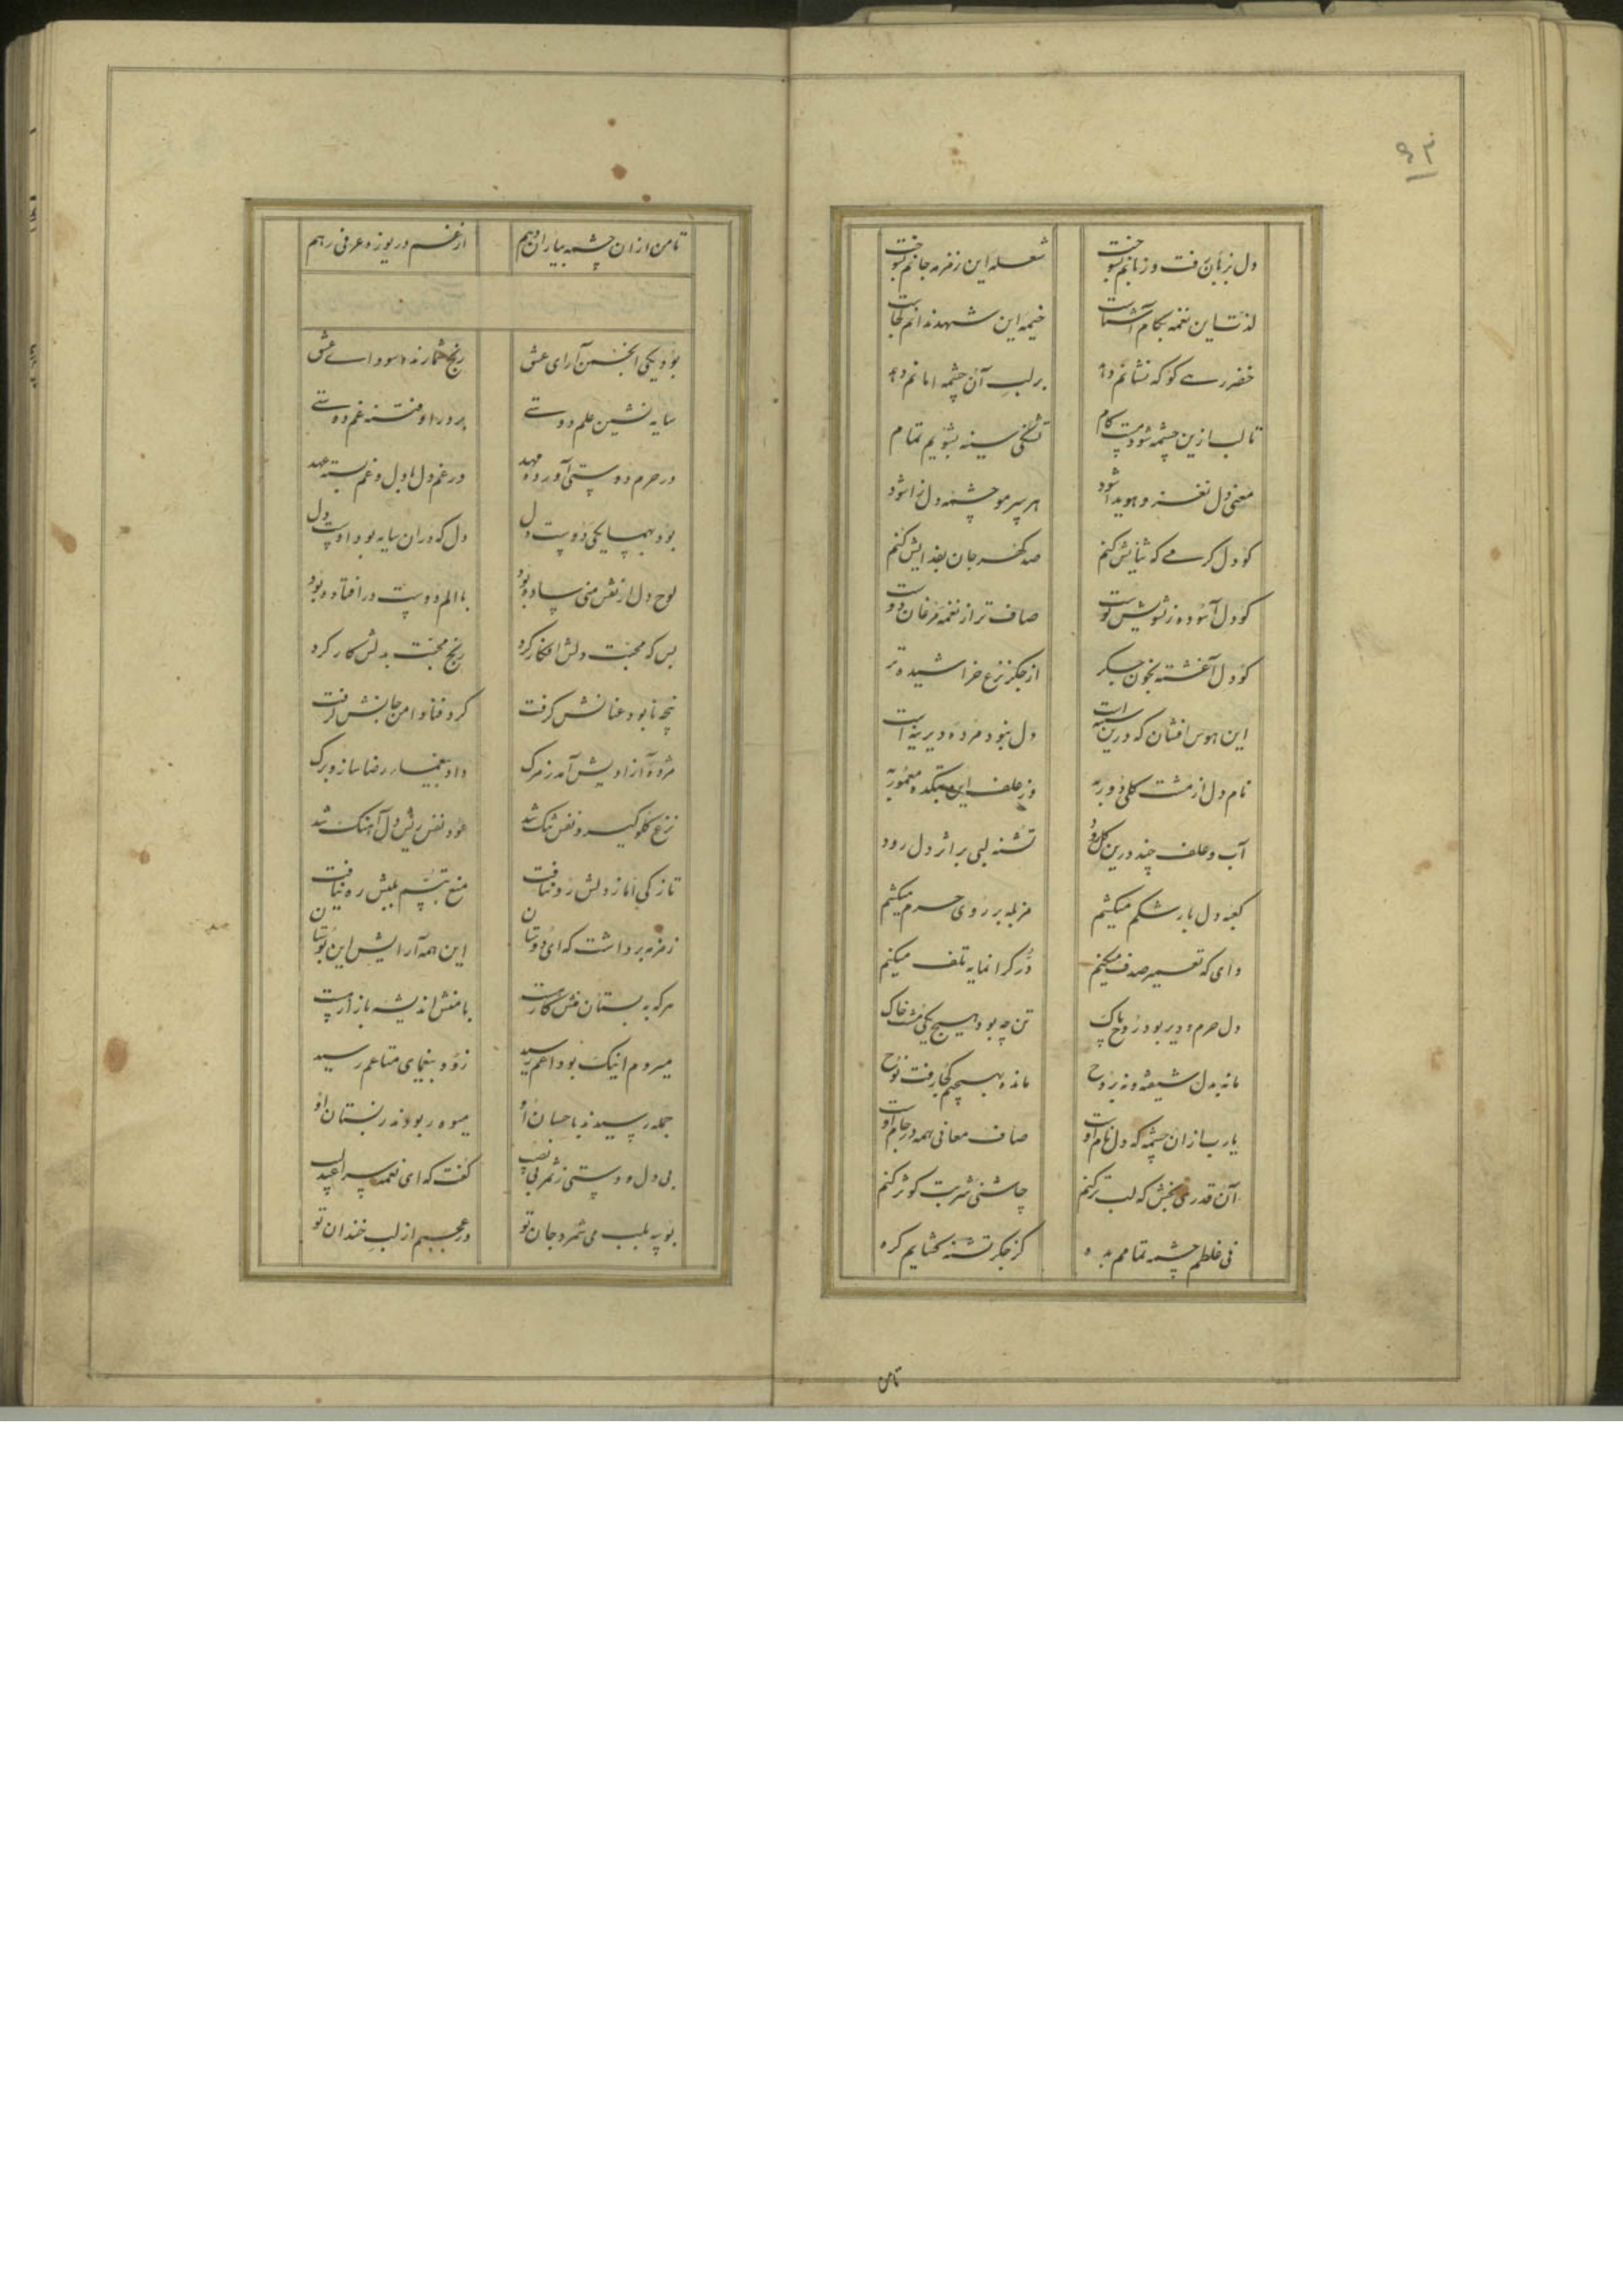 ۹۳
دل بزبان رفت و زبانم بسوخت شعله این زمزمه جانم بسوخت
لذت این نغمه بکام آشناست خیمه این شهد ندانم کجاست
خضر رهی کو که نشانم دهد بر لب آن چشمه امانم دهد
تا لب ازین چشمه شود مست کام تشنگی سینه بشویم تمام
معنی دل نغز و هویدا شود هر سر مو چشمه دل زا شود
کو دل کرمی که ثنایش کنم صد کهر جان بفدایش کنم
کو دل آسوده ز تشویش پوست صاف تر از نغمه مرغان دوست
کو دل آغشته بخون جکر از جکر نزع خراشیده تر
این هوس افشان که درین سینه است دل نبود مرده دیرینه است
نام دل از مشت کلی دور به وز علف این بتکده معمور به
آب و علف چند درین کل رود تشنه لبی بر اثر دل رود
کعبه دل بار شکم میکشیم مزبله بر روی حرم میکشیم
وای که تعمیر صدف میکنیم در کرانمایه تلف میکنیم
دل حرم و دیر بود روح پاک تن چه بود هیچ یکی مشت خاک
ما نه بدل شیفته و نه بروح مانده بهیچیم کجا رفت نوح
یارب ازان چشمه که دل نام اوست صاف معانی همه در جام اوست
آن قدری بخش که لب تر کنم چاشنی شربت کوثر کنم
نی غلطم چشمه تمامم بده کز جکر تشنه کشایم کره
تا من
تا من ازان چشمه بیاران دهم از غم دریوزه عرفی رهم
بود یکی انجمن آرای عشق رنج شمارنده سودای عشق
سایه نشین علم دوستی پرور او فتنه غم دوستی
در حرم دوستی آورده مهد در غم دل با دل و غم بسته عهد
بود بهمسایکی دوست دل دل که دران سایه بود اوست دل
لوح دل از نقش منی ساده بود با الم دوست در افتاده بود
بس که محبت دلش افکار کرد رنج محبت بدلش کار کرد
پنجه نابود عنانش کرفت کرد فنا دامن جانش کرفت
مژده آزادیش آمد ز مرک داد بیغمای رضا ساز و برک
نزع کلو کیر و نفس تنک شد عود نفس پیش دل آهنک شد
تازکی اما ز دلش رو نتافت منع تبسم بلبش ره نیافت
زمزمه برداشت که ای دوستان این همه آرایش این بوستان
هر که به بستان منش کار هست با منش اندیشه بازار هست
میروم اینک بوداعم رسید زود بیغمای متاعم رسید
جمله رسیدند باحسان او میوه ربودند ز بستان او
بی دل و دستی ز ثمر بی نصیب کفت که ای نغمه سرا عندلیب
بوسه بلب می شمرد جان تو در عجبم از لب خندان تو